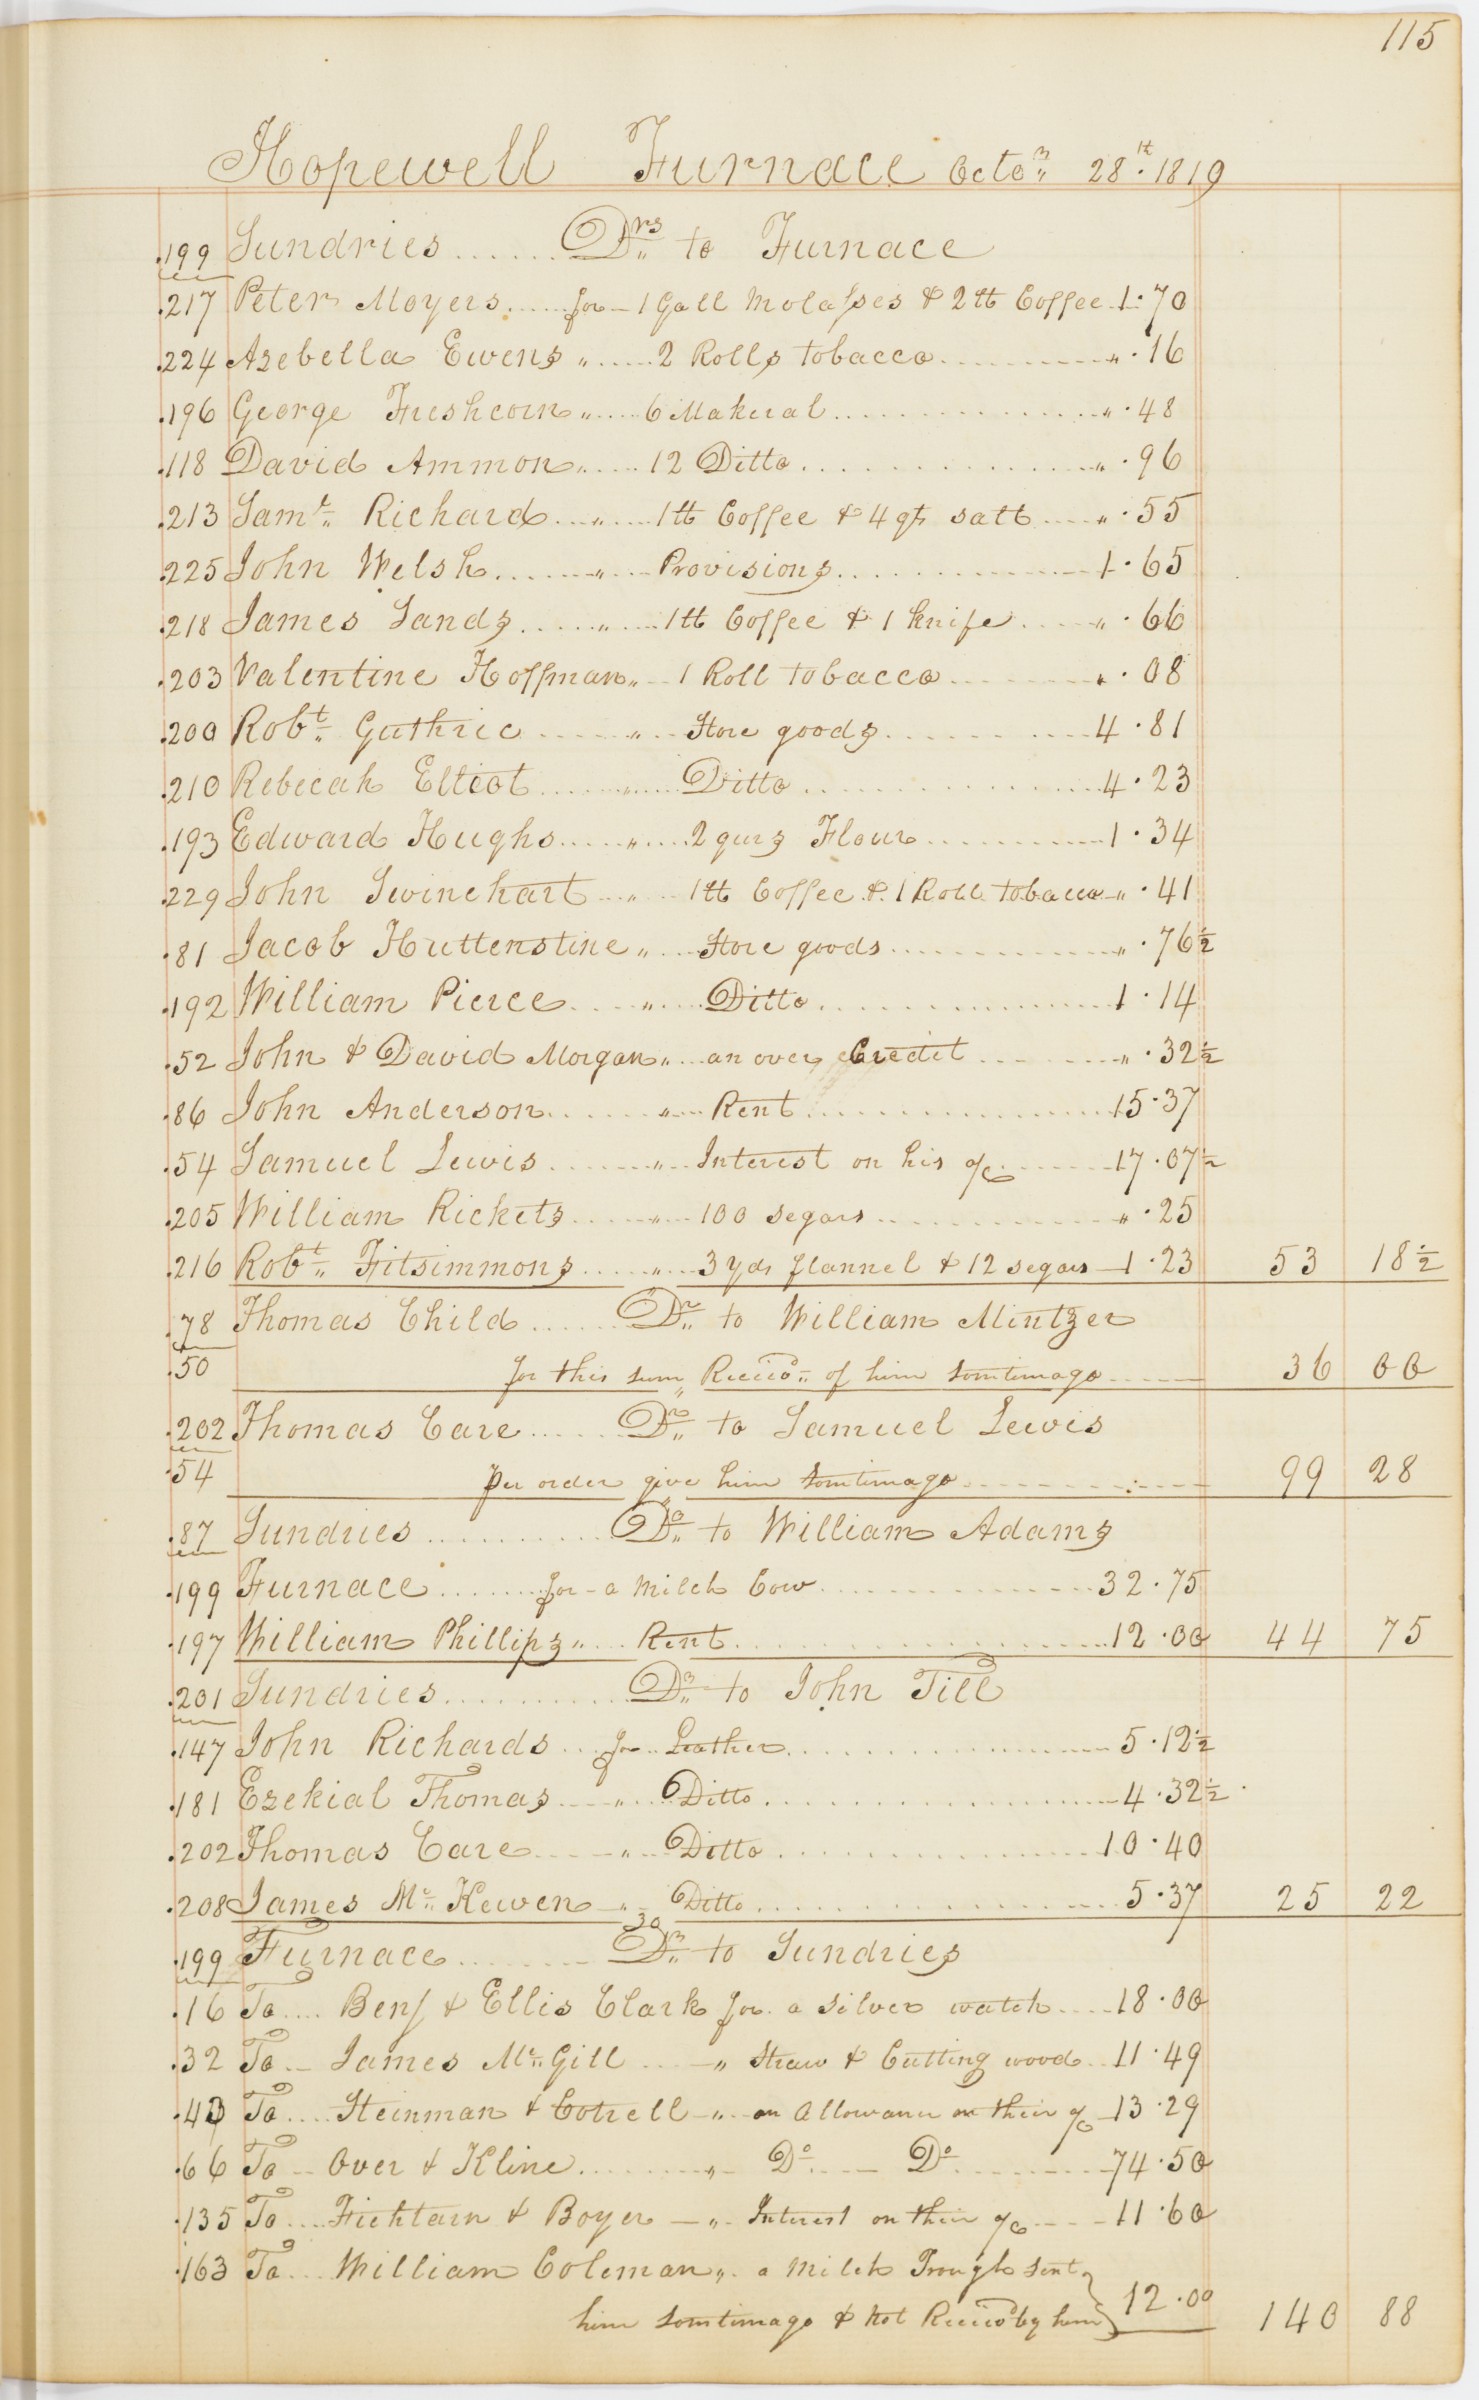 115
Hopewell Furnace Octo.r 28.th 1819
.199 Sundries ...... Drs. to Furnace
.217 Peter Moyers ...... for - 1 Gall Molasses & 2 lb Coffee 1.70
.224 Azebella Ewens " ..... 2 Rolls tobacco ........... " .16
.196 George Freshcorn " ..... 6 Makeral ............... " .48
.118 David Ammon " ..... 12 Ditto ............... " .96
.213 Saml. Richard ... " .... 1 lb Coffee & 4 qts salt .... " .55
.225 John Welsh ...... " ... Provisions ............. 1.65
.218 James Sands ..... " .... 1 lb Coffee & 1 knife .... " .66
.203 Valentine Hoffman " ... 1 Roll tobacco ......... " .08
.200 Robt. Guthrie ...... " ... Store goods .......... 4.81
.210 Rebecah Elliot ..... " ..... Ditto .............. 4.23
.193 Edward Hughs ..... " ..... 2 qurs Flour ............ 1.34
.229 John Swinehart ... " ... 1 lb Coffee & 1 Roll tobacco " .41
.81 Jacob Huttenstine " .... Store goods ............. " .76½
.192 William Pierce ..... " .... Ditto ................ 1.14
.52 John & David Morgan " .... an over Credit ......... " .32½
.86 John Anderson ....... " ... Rent ................. 15.37
.54 Samuel Lewis ....... " ... Interest on his a/c ........ 17.07½
.205 William Rickets ..... " ... 100 segars ............. " .25
.216 Robt. Fitsimmons ..... " ... 3 yds flannel & 12 segars 1.23 53 18½
.78 Thomas Child ...... Dr. to William Mintzer
.50 for this sum Receivd. of him somtimago ..... 36 00
.202 Thomas Care ...... Dr. to Samuel Lewis
.54 Per order give him somtimago ............ 99 28
.87 Sundries .......... Dr. to William Adams
.199 Furnace ........ for - a Milch Cow ............. 32.75
.197 William Phillips " .... Rent ................. 12.00 44 75
.201 Sundries ........... Dr. to John Till
.147 John Richards ... for .. Leather .............. 5.12½
.181 Ezekial Thomas .... " .... Ditto ................ 4.32½
.202 Thomas Care ..... " ... Ditto ............... 10.40
.208 James Mc. Kewen - " - Ditto ................ 5.37 25 22
30
.199 Furnace ........ Dr. to Sundries
.16 To .... Benj & Ellis Clark for a silver watch .... 18.00
.32 To .. James Mc. Gill .... " Straw & Cutting wood .. 11.49
.43 To .... Steinman & Cotrell - " .. an Allowance on their a/c 13.29
.66 To .. Over & Kline ........ " .. Do ..... Do ........ 74.50
.135 To .... Fichtarn & Boyer - " .. Interest on their a/c .... 11.60
.163 To ... William Coleman " .. a Milch Trough sent
him somtimago & not Receivd by him } 12.00 140 88